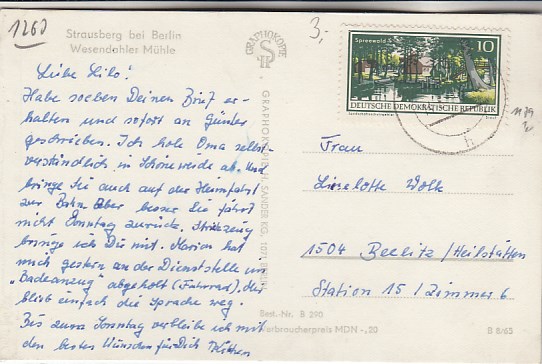 1260
3,-
Strausberg bei Berlin
Wesendahler Mühle
GRAPHOKOPIE
Spreewald
10
DEUTSCHE DEMOKRATISCHE REPUBLIK
h
Liebe Lilo!
Habe soeben Deinen Brief er-
halten und sofort an Günter
geschrieben. Ich hole Oma selbst-
verständlich in Schöneweide ab. Und
bringe Sie auch auf der Heimfahrt
zur Bahn. Aber besser Sie fährt
nicht Sonntag zurück. Strickzeug
bringe ich Dir mit. Marion hat
mich gestern an der Dienststelle im
"Badeanzug" abgeholt (Fahrrad), der
blieb einfach die Sprache weg.
Bis zum Sonntag verbleibe ich mit
den besten Wünschen für Dich
GRAPHOKOPIE H. SANDER KG. 1071 BERLIN
Frau
Lieselotte Wolk
1504 Beelitz/Heilstätten
Station 15 / Zimmer 6
Best.-Nr. B 290
Verbraucherpreis MDN -,20
B 8/65